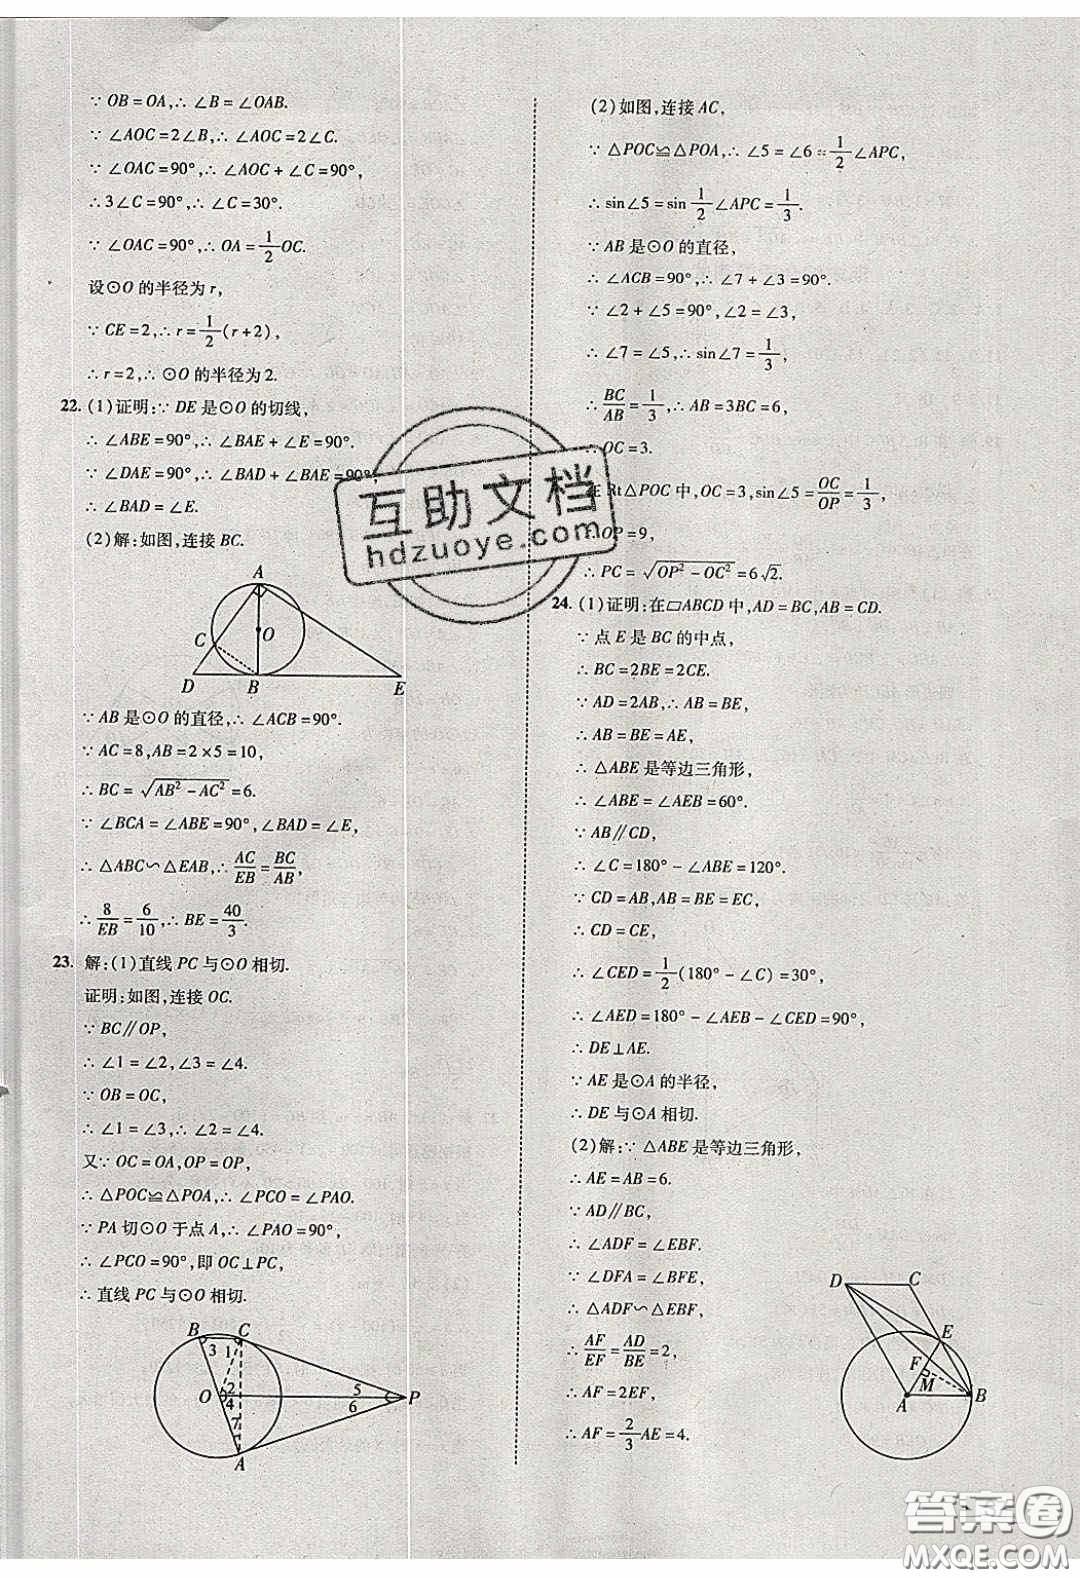 ∵ OB = OA, ∴ ∠B = ∠OAB.
∵ ∠AOC = 2∠B, ∴ ∠AOC = 2∠C.
∵ ∠OAC = 90°, ∴ ∠AOC + ∠C = 90°,
∴ 3∠C = 90°, ∴ ∠C = 30°.
∵ ∠OAC = 90°, ∴ OA = 1/2 OC.
设⊙O 的半径为 r,
∵ CE = 2, ∴ r = 1/2 (r + 2),
∴ r = 2, ∴ ⊙O 的半径为 2.
22. (1)证明: ∵ DE 是⊙O 的切线,
∴ ∠ABE = 90°, ∴ ∠BAE + ∠E = 90°.
∵ ∠DAE = 90°, ∴ ∠BAD + ∠BAE = 90°,
∴ ∠BAD = ∠E.
(2)解:如图,连接 BC.
A
C
O
D
B
E
∵ AB 是⊙O 的直径, ∴ ∠ACB = 90°.
∵ AC = 8, AB = 2 × 5 = 10,
∴ BC = √(AB² − AC²) = 6.
∵ ∠BCA = ∠ABE = 90°, ∠BAD = ∠E,
∴ △ABC∽△EAB, ∴ AC/EB = BC/AB,
∴ 8/EB = 6/10, ∴ BE = 40/3.
23. 解:(1)直线 PC 与⊙O 相切.
证明:如图,连接 OC.
∵ BC∥OP,
∴ ∠1 = ∠2, ∠3 = ∠4.
∵ OB = OC,
∴ ∠1 = ∠3, ∴ ∠2 = ∠4.
又∵ OC = OA, OP = OP,
∴ △POC≌△POA, ∴ ∠PCO = ∠PAO.
∵ PA 切⊙O 于点 A, ∴ ∠PAO = 90°,
∴ ∠PCO = 90°, 即 OC⊥PC,
∴ 直线 PC 与⊙O 相切.
B C
3 1
O 2 5 P
4 6
7
A
(2)如图,连接 AC,
∵ △POC≌△POA, ∴ ∠5 = ∠6 = 1/2 ∠APC,
∴ sin∠5 = sin 1/2 ∠APC = 1/3.
∵ AB 是⊙O 的直径,
∴ ∠ACB = 90°, ∴ ∠7 + ∠3 = 90°.
∵ ∠2 + ∠5 = 90°, ∠2 = ∠3,
∴ ∠7 = ∠5, ∴ sin∠7 = 1/3,
∴ BC/AB = 1/3, ∴ AB = 3BC = 6,
∴ OC = 3.
在 Rt△POC 中, OC = 3, sin∠5 = OC/OP = 1/3,
∴ OP = 9,
∴ PC = √(OP² − OC²) = 6√2.
24. (1)证明:在▱ABCD 中, AD = BC, AB = CD.
∵ 点 E 是 BC 的中点,
∴ BC = 2BE = 2CE.
∵ AD = 2AB, ∴ AB = BE,
∴ AB = BE = AE,
∴ △ABE 是等边三角形,
∴ ∠ABE = ∠AEB = 60°.
∵ AB∥CD,
∴ ∠C = 180° − ∠ABE = 120°.
∵ CD = AB, AB = BE = EC,
∴ CD = CE,
∴ ∠CED = 1/2 (180° − ∠C) = 30°,
∴ ∠AED = 180° − ∠AEB − ∠CED = 90°,
∴ DE⊥AE.
∵ AE 是⊙A 的半径,
∴ DE 与⊙A 相切.
(2)解: ∵ △ABE 是等边三角形,
∴ AE = AB = 6.
∵ AD∥BC,
∴ ∠ADF = ∠EBF.
∵ ∠DFA = ∠BFE,
∴ △ADF∽△EBF,
∴ AF/EF = AD/BE = 2,
∴ AF = 2EF,
∴ AF = 2/3 AE = 4.
D C
E
F
M
A B
互助文档
hdzuoye.com
答案卷
MXQE.COM